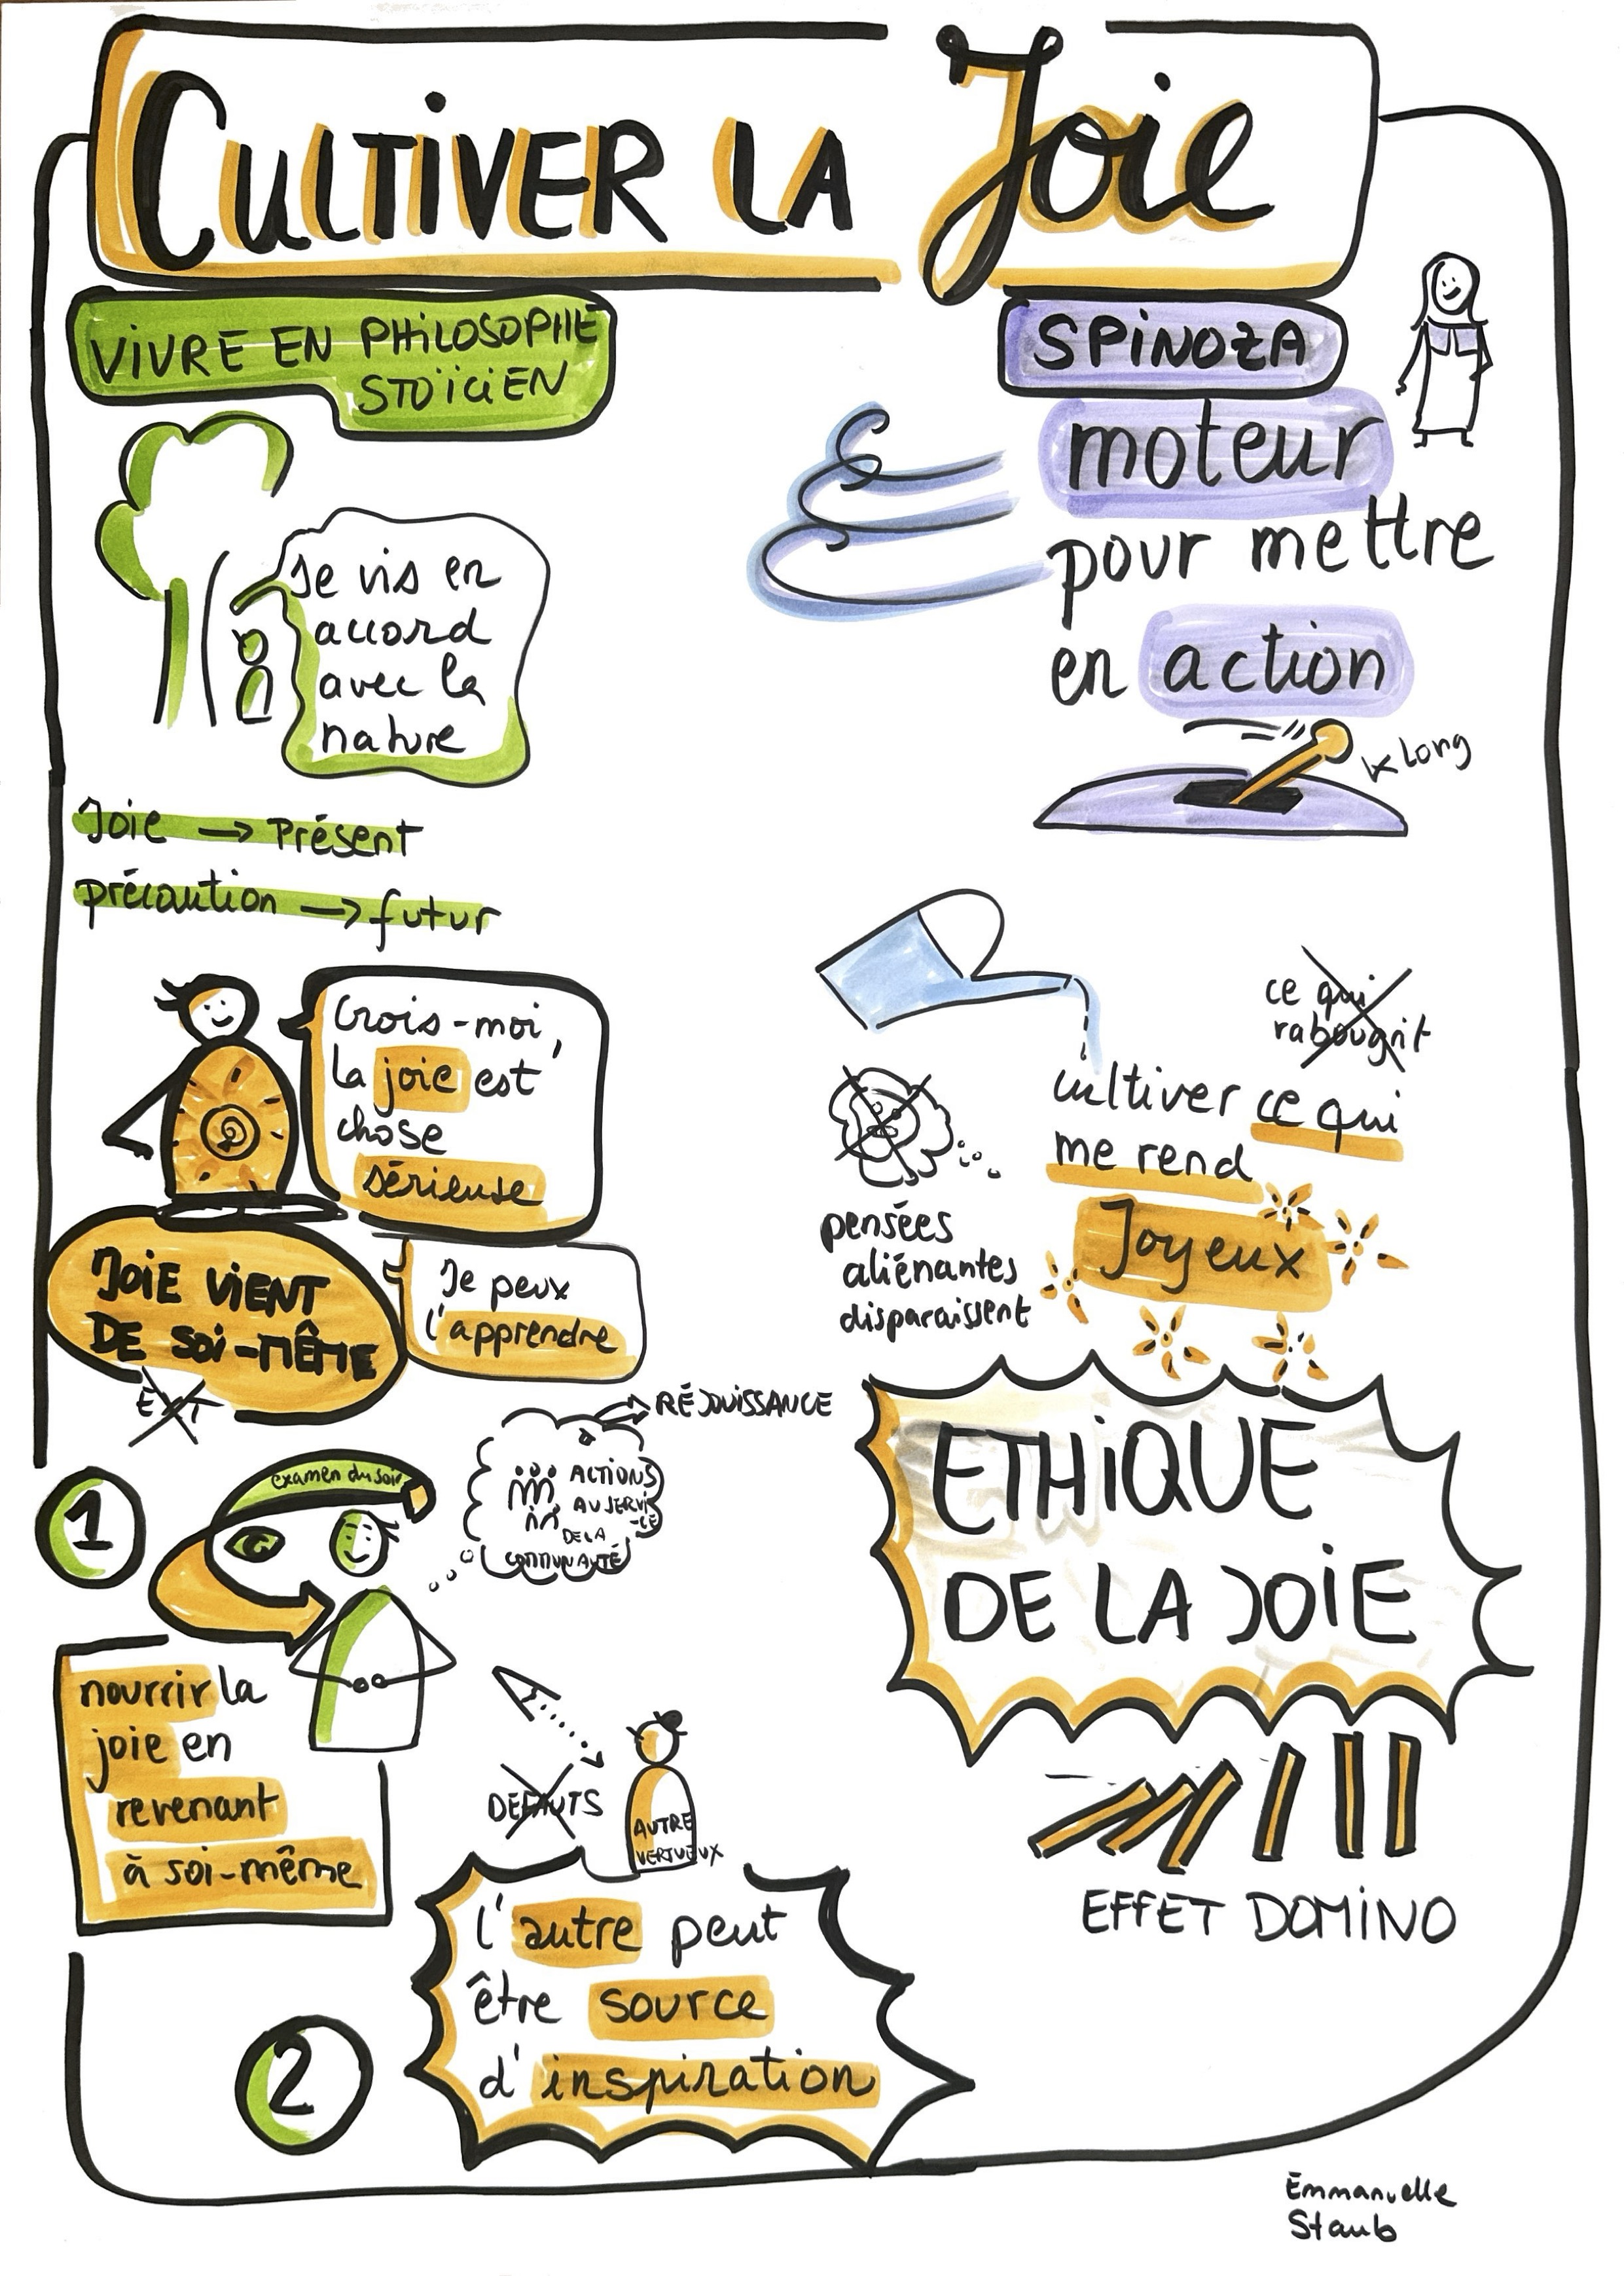 CULTIVER LA Joie
VIVRE EN PHILOSOPHE
STOÏCIEN
Je vis en
accord
avec la
nature
Joie → Présent
précaution → futur
Crois-moi,
la joie est
chose
sérieuse
JOIE VIENT
DE SOI-MÊME
EXT
Je peux
l'apprendre
1
examen du soir
RÉJOUISSANCE
ACTIONS
AU SERVI
-CE
DE LA
COMMUNAUTÉ
nourrir la
joie en
revenant
à soi-même
DEFAUTS
AUTRE
VERTUEUX
2
l'autre peut
être source
d'inspiration
SPINOZA
moteur
pour mettre
en action
Long
ce qui
rabougrit
cultiver ce qui
me rend
Joyeux
pensées
aliénantes
disparaissent
ETHIQUE
DE LA JOIE
EFFET DOMINO
Emmanuelle
Staub